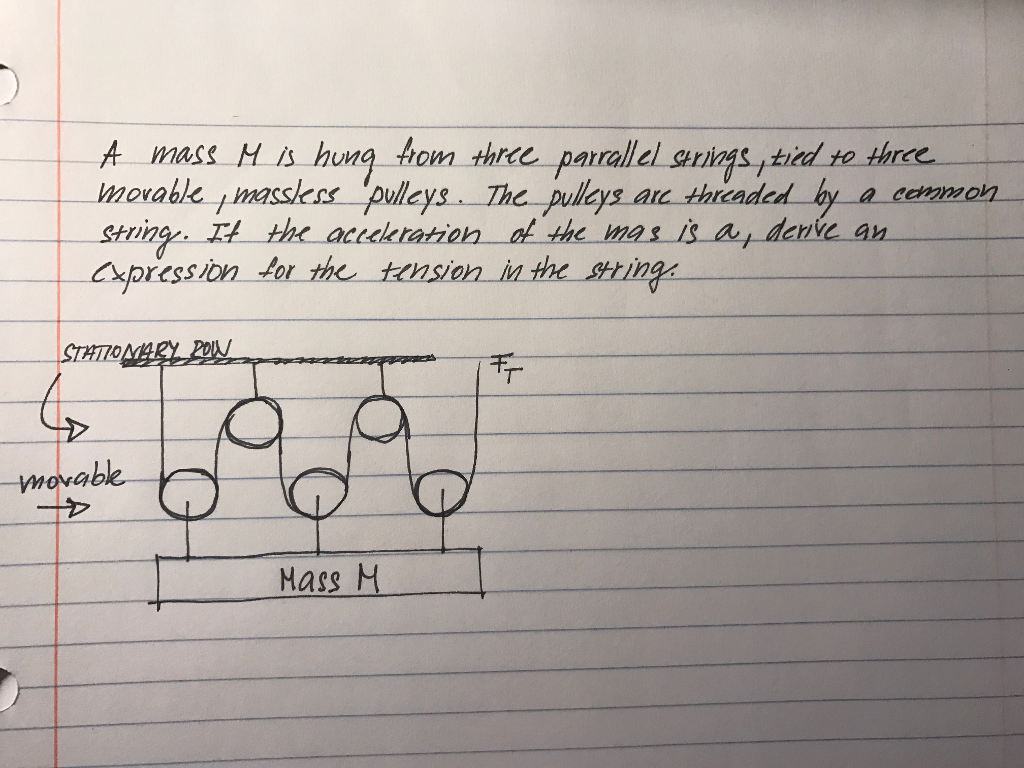 A mass M is hung from three parrallel strings, tied to three
movable, massless pulleys. The pulleys are threaded by a common
string. If the acceleration of the mas is a, derive an
expression for the tension in the string.
STATIONARY ROW
F_T
movable
Mass M